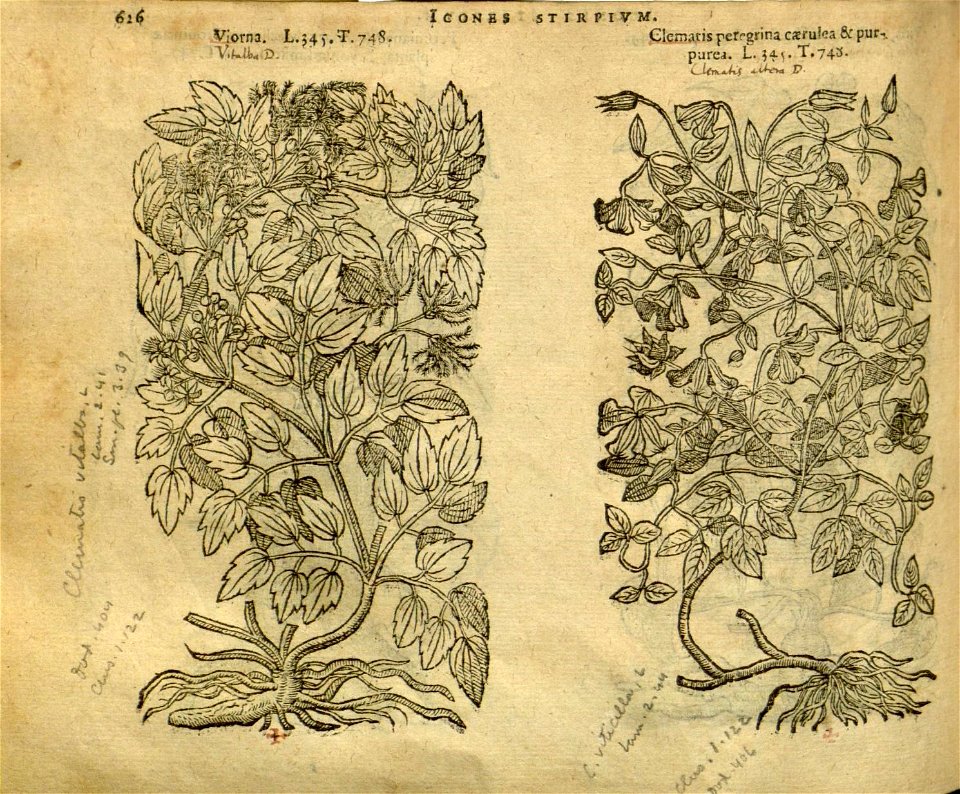 626
ICONES STIRPIVM.
Viorna. L.345. T. 748.
Vitalba D.
Clematis peregrina cærulea & pur-
purea. L. 345. T. 748.
Clematis altera D.
Clematis vitalba, L
Lam. 2. 41
3. 39
Dod. 404
Clus. 1. 122
C. viticella, L
Lam. 2.
Clus. 1. 122
Dod. 406